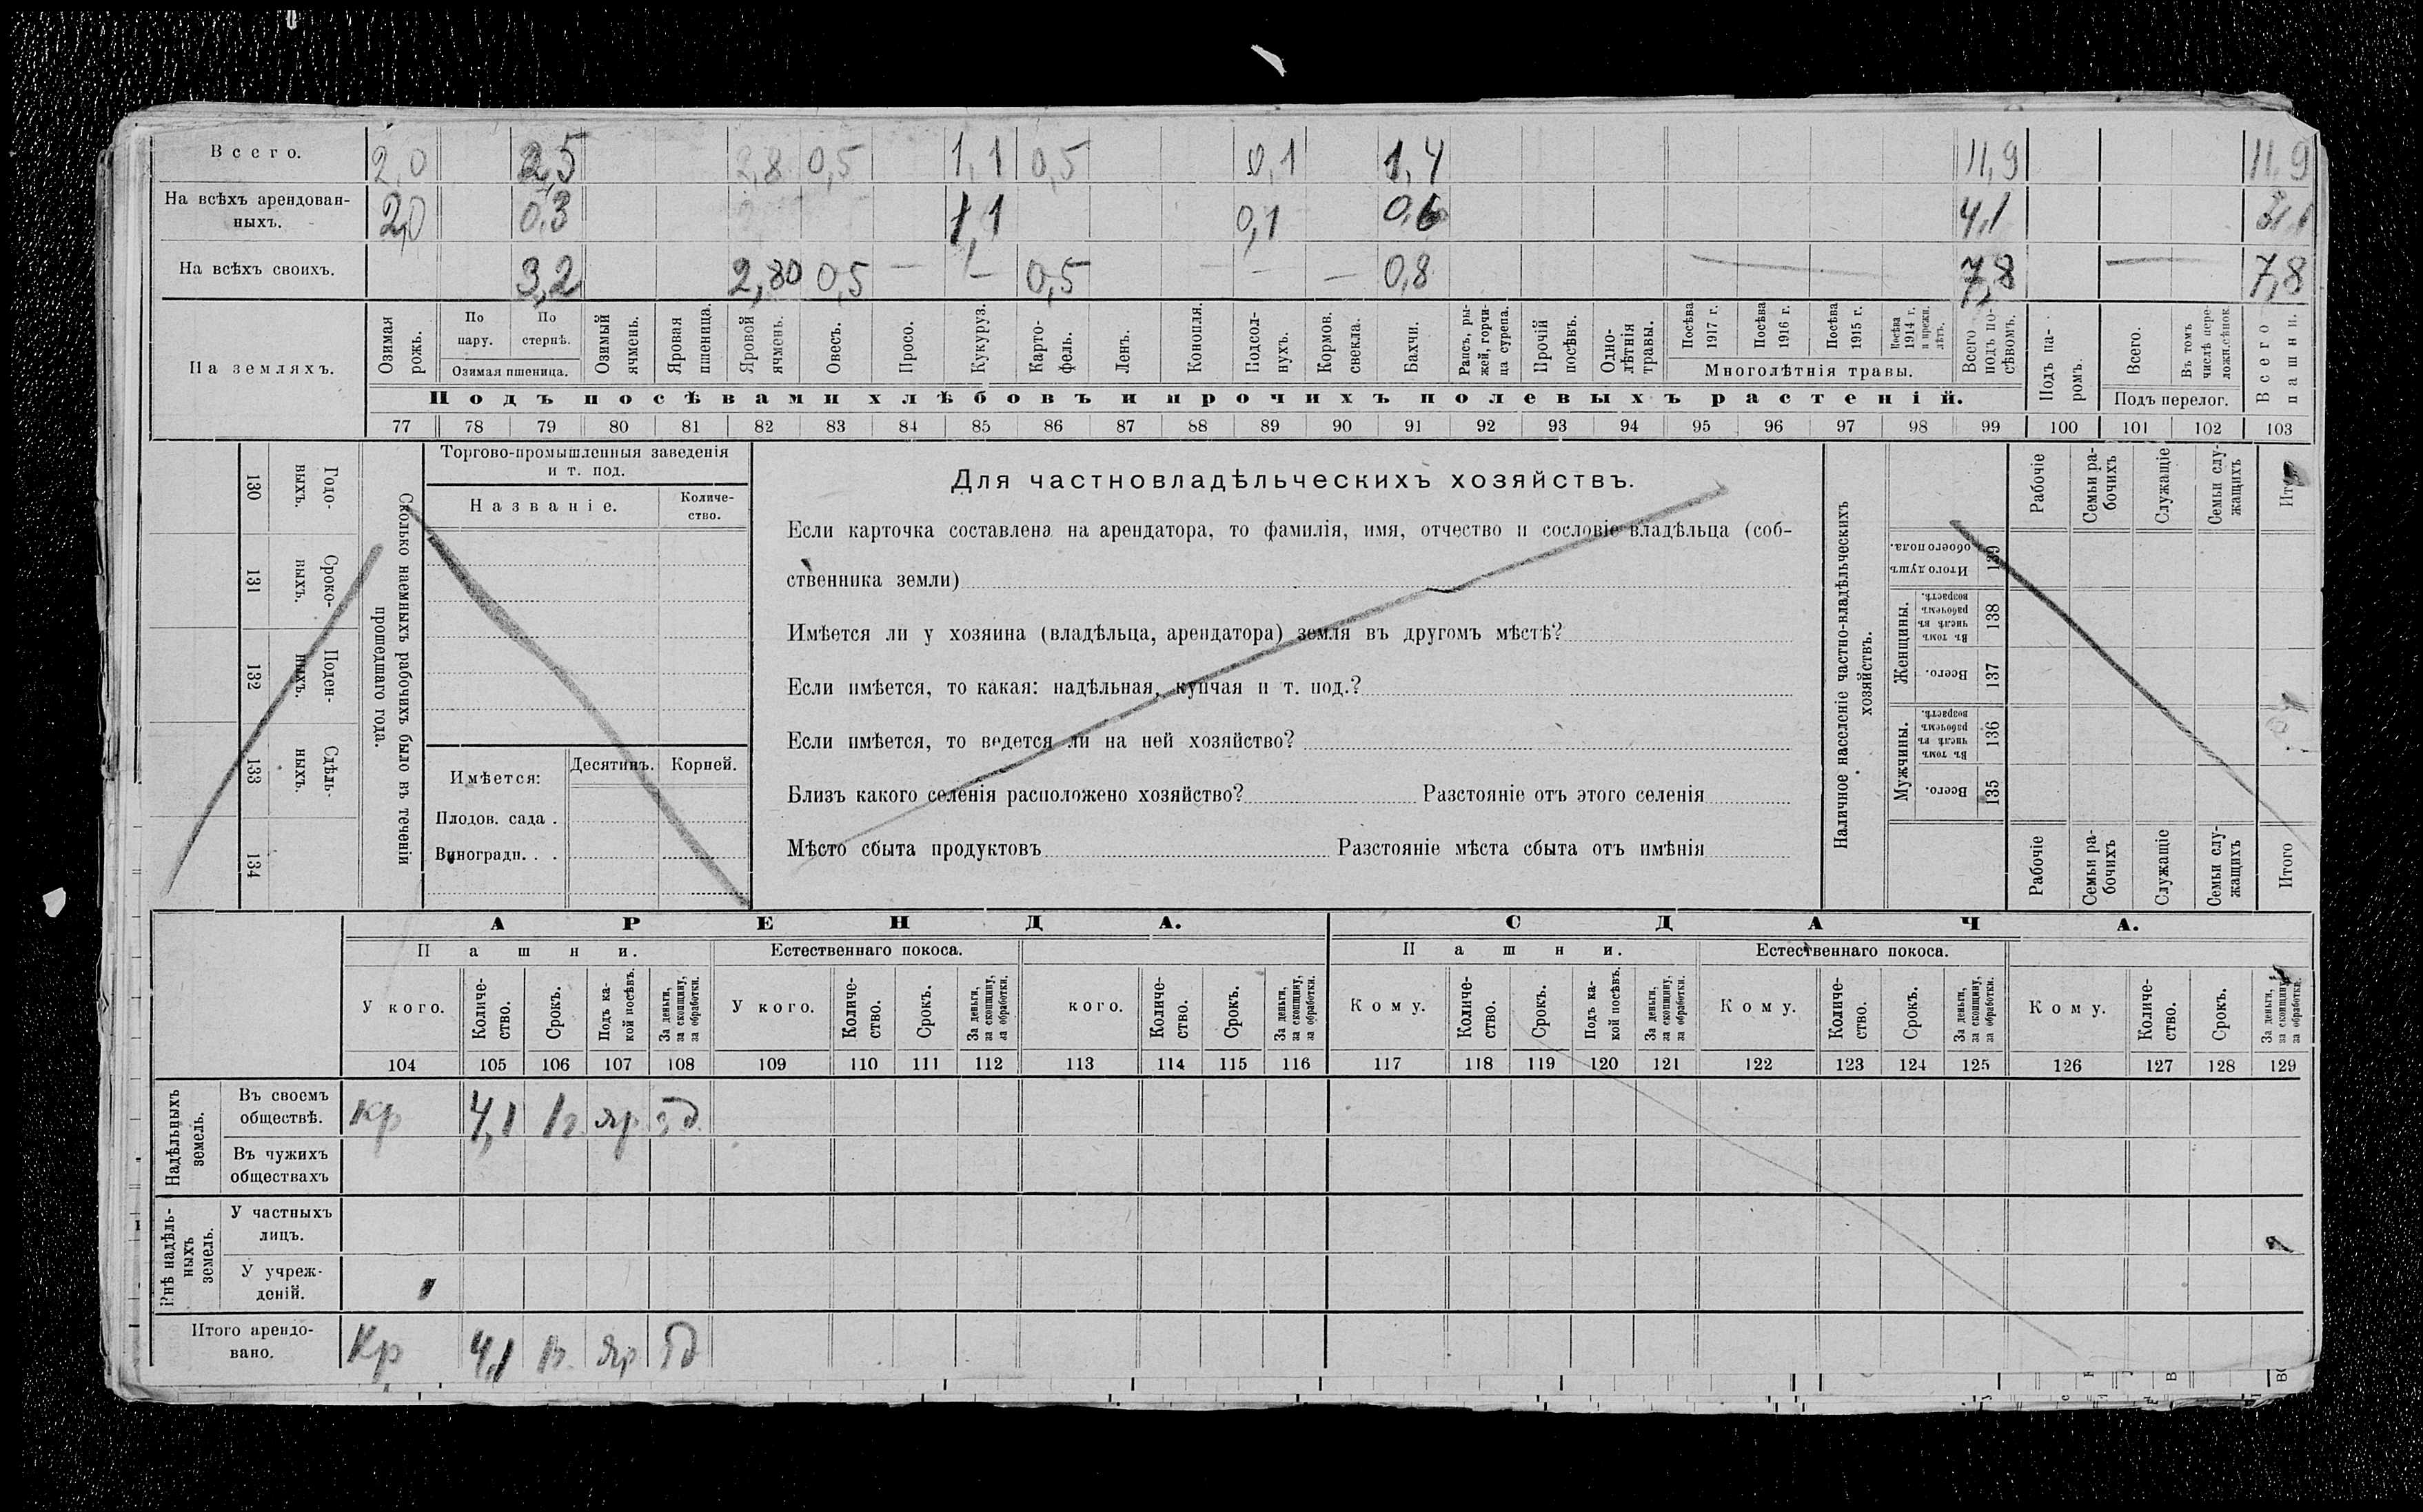 Всего. 2,0 2,8 0,5 1,1 0,5 0,1 1,4 11,9 11,9
На всѣхъ арендован-
ныхъ. 2,0 0,3 1,1 0,1 0,6 4,1
На всѣхъ своихъ. 3,2 2,80 0,5 — — 0,5 — — — 0,8 — 7,8 — 7,8
На земляхъ.
Озимая рожь.
По пару.
По стернѣ.
Озимая пшеница.
Озимый ячмень.
Яровая пшеница.
Яровой ячмень.
Овесъ.
Просо.
Кукуруз.
Карто-
фель.
Ленъ.
Конопля.
Подсол-
нухъ.
Кормов. свекла.
Бахчи.
Рапсъ, ры-
жей, горчи-
ца сурепа.
Прочій посѣвъ.
Одно-
лѣтнія травы.
Посѣва 1917 г.
Посѣва 1916 г.
Посѣва 1915 г.
Посѣва 1914 г. и прежн. лѣтъ.
Многолѣтнія травы.
Всего подъ по-
сѣвомъ.
Подъ посѣвами хлѣбовъ и прочихъ полевыхъ растеній.
Подъ па-
ромъ.
Всего.
Въ томъ числѣ пере-
ложн.сѣнок.
Подъ перелог.
Всего пашни.
77 78 79 80 81 82 83 84 85 86 87 88 89 90 91 92 93 94 95 96 97 98 99 100 101 102 103
130 Годо-
выхъ.
131 Сроко-
ныхъ.
132 Поден-
ныхъ.
133 Сдѣль-
ныхъ.
134
Сколько наемныхъ рабочихъ было въ теченіи
прошедшаго года.
Торгово-промышленныя заведенія
и т. под.
Названіе.
Количе-
ство.
Имѣется: Десятинъ. Корней.
Плодов. сада .
Виноградн. . .
Для частновладѣльческихъ хозяйствъ.
Если карточка составлена на арендатора, то фамилія, имя, отчество и сословіе владѣльца (соб-
ственника земли)
Имѣется ли у хозяина (владѣльца, арендатора) земля въ другомъ мѣстѣ?
Если имѣется, то какая: надѣльная, купчая и т. под.?
Если имѣется, то ведется ли на ней хозяйство?
Близъ какого селенія расположено хозяйство? Разстояніе отъ этого селенія
Мѣсто сбыта продуктовъ Разстояніе мѣста сбыта отъ имѣнія
Наличное населеніе частно-владѣльческихъ
хозяйствъ.
Рабочіе
Семьи ра-
бочихъ
Служащіе
Семьи слу-
жащихъ
Итого
Итого душъ обоего пола. 139
Женщины.
Въ томъ числѣ въ рабочемъ возрастѣ. 138
Всего. 137
Мужчины.
Въ томъ числѣ въ рабочемъ возрастѣ. 136
Всего. 135
Рабочіе
Семьи ра-
бочихъ
Служащіе
Семьи слу-
жащихъ
Итого
АРЕНДА. СДАЧА.
Пашни. Естественнаго покоса. Пашни. Естественнаго покоса.
У кого.
Количе-
ство.
Срокъ.
Подъ ка-
кой посѣвъ.
За деньги, за скопщину, за обработки.
У кого.
Количе-
ство.
Срокъ.
За деньги, за скопщину, за обработки.
кого.
Количе-
ство.
Срокъ.
За деньги, за скопщину, за обработки.
Кому.
Количе-
ство.
Срокъ.
Подъ ка-
кой посѣвъ.
За деньги, за скопщину, за обработки.
Кому.
Количе-
ство.
Срокъ.
За деньги, за скопщину, за обработки.
Кому.
Количе-
ство.
Срокъ.
За деньги, за скопщину, за обработки.
104 105 106 107 108 109 110 111 112 113 114 115 116 117 118 119 120 121 122 123 124 125 126 127 128 129
Надѣльныхъ
земель.
Въ своемъ
обществѣ. кр 4,1 1г. яр
Въ чужихъ
обществахъ
Внѣ надѣль-
ныхъ
земель.
У частныхъ
лицъ.
У учреж-
деній.
Итого арендо-
вано. Кр 4,1 1г. яр